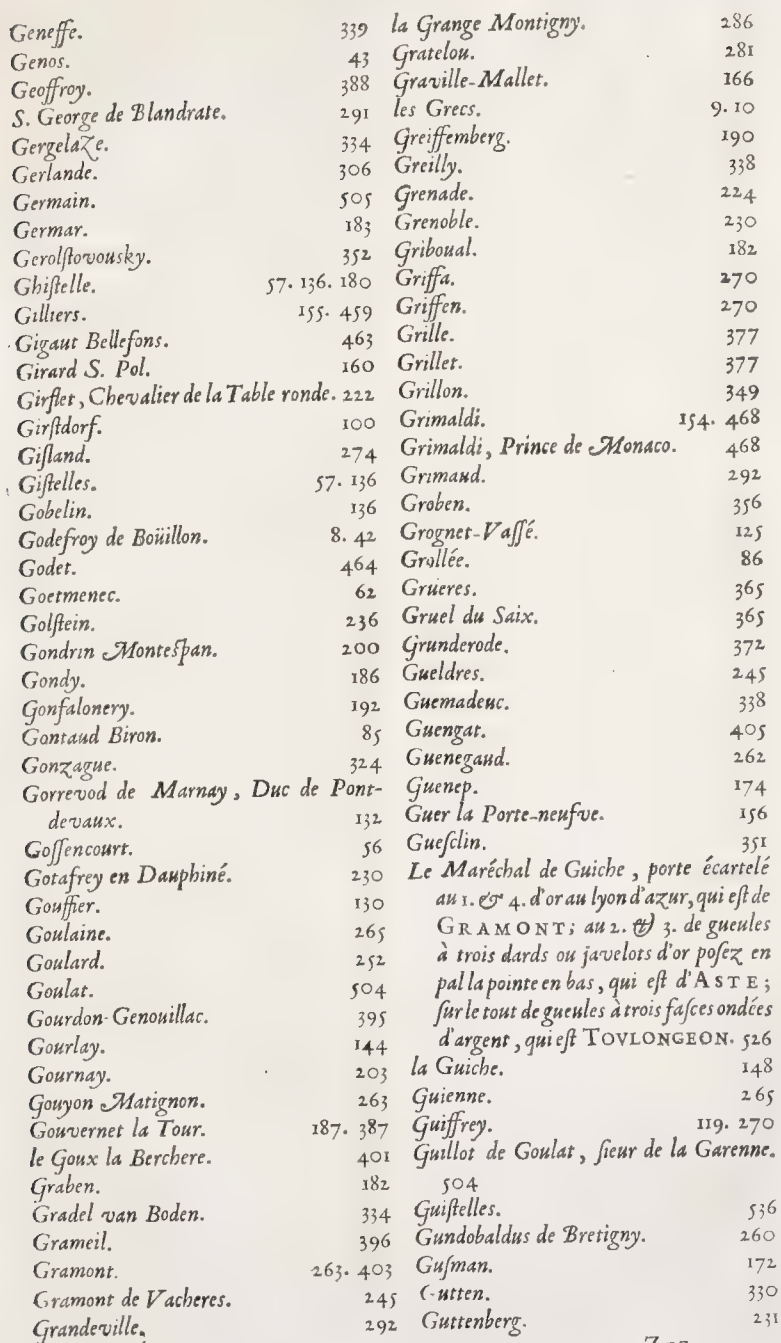 Geneffe. 339
Genos. 43
Geoffroy. 388
S. George de Blandrate. 291
Gergelaze. 334
Gerlande. 306
Germain. 505
Germar. 183
Gerolſtovousky. 352
Ghiſtelle. 57. 136. 180
Gilliers. 155. 459
Gigaut Bellefons. 463
Girard S. Pol. 160
Girflet, Chevalier de la Table ronde. 222
Girſtdorf. 100
Giſland. 274
Giſtelles. 57. 136
Gobelin. 136
Godefroy de Boüillon. 8. 42
Godet. 464
Goetmenec. 62
Golſtein. 236
Gondrin Monteſpan. 200
Gondy. 186
Gonfalonery. 192
Gontaud Biron. 85
Gonzague. 324
Gorrevod de Marnay, Duc de Pont-
devaux. 132
Goſſencourt. 56
Gotafrey en Dauphiné. 230
Gouffier. 130
Goulaine. 265
Goulard. 252
Goulat. 504
Gourdon-Genouillac. 395
Gourlay. 144
Gournay. 203
Gouyon Matignon. 263
Gouvernet la Tour. 187. 387
le Goux la Berchere. 401
Graben. 182
Gradel van Boden. 334
Grameil. 396
Gramont. 263. 403
Gramont de Vacheres. 245
Grandeville. 292
la Grange Montigny. 286
Gratelou. 281
Graville-Mallet. 166
les Grecs. 9. 10
Greiffemberg. 190
Greilly. 338
Grenade. 224
Grenoble. 230
Griboual. 182
Griffa. 270
Griffen. 270
Grille. 377
Grillet. 377
Grillon. 349
Grimaldi. 154. 468
Grimaldi, Prince de Monaco. 468
Grimaud. 292
Groben. 356
Grognet-Vaſſé. 125
Grollée. 86
Grueres. 365
Gruel du Saix. 365
Grunderode. 372
Gueldres. 245
Guemadeuc. 338
Guengat. 405
Guenegaud. 262
Guenep. 174
Guer la Porte-neufve. 156
Gueſclin. 351
Le Maréchal de Guiche, porte écartelé
au 1. & 4. d'or au lyon d'azur, qui eſt de
GRAMONT; au 2. & 3. de gueules
à trois dards ou javelots d'or poſez en
pal la pointe en bas, qui eſt d'ASTE;
ſur le tout de gueules à trois faſces ondées
d'argent, qui eſt TOVLONGEON. 526
la Guiche. 148
Guienne. 265
Guiffrey. 119. 270
Guillot de Goulat, ſieur de la Garenne.
504
Guiſtelles. 536
Gundobaldus de Bretigny. 260
Guſman. 172
Gutten. 330
Guttenberg. 231